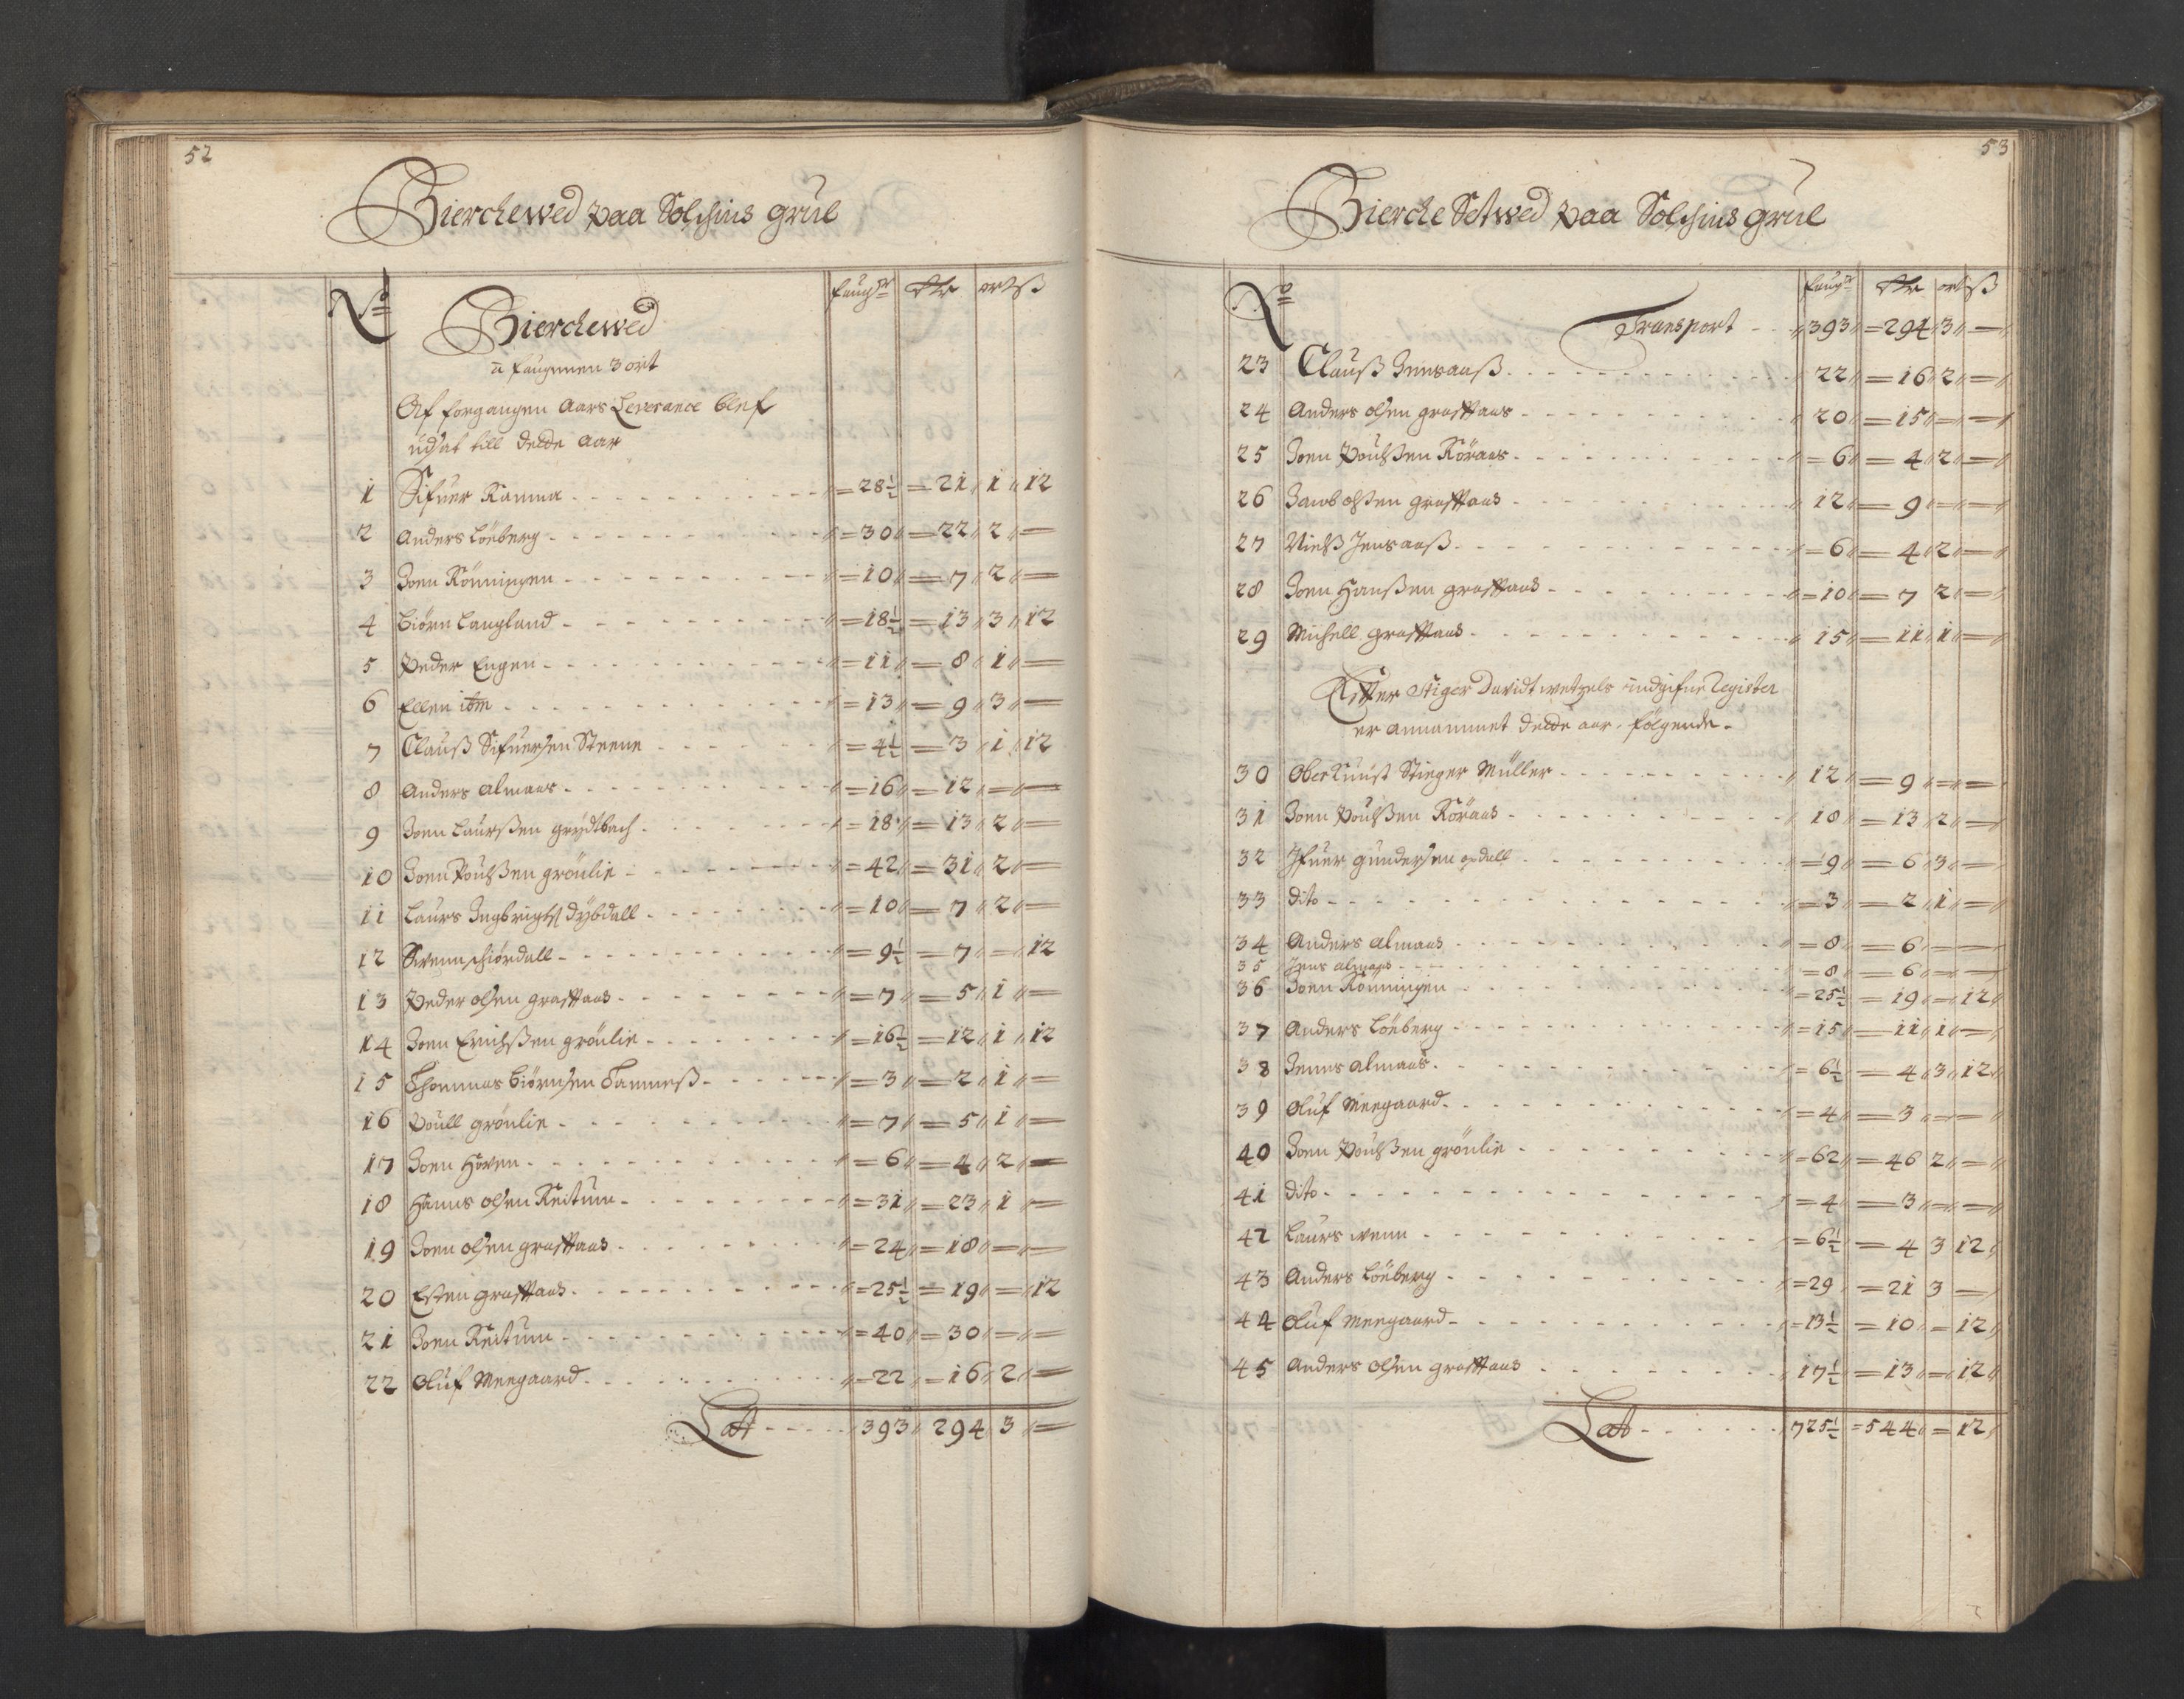 52
Bierckewed paa Solschins grue
No faugne Rdr ort ß
Bierckewed
a faugnnen 3 ort
Af forgangen aars Leverance blef
udsat till dette aar
1 Sifuer Kamma = 28½ = 21 1 12
2 Anders Löeberg = 30 = 22 2 =
3 Joen Rönningen = 10 = 7 2 =
4 Biörn Langland = 18½ = 13 3 12
5 Peder Engen = 11 = 8 1 =
6 Ellen itm = 13 = 9 3 =
7 Clauß Sifuersen Steene = 4½ = 3 1 12
8 Anders Almaas = 16 = 12 = =
9 Joen Laurßen grydtbach = 18 = 13 2 =
10 Joen Poulßen grönlie = 42 = 31 2 =
11 Laurs Ingbrigts dybdall = 10 = 7 2 =
12 Svenn schiördall = 9½ = 7 = 12
13 Peder olsen graffaas = 7 = 5 1 =
14 Joen Erichßen grönlie = 16½ = 12 1 12
15 Thommas Biörnsen Tammeß = 3 = 2 1 =
16 Poull grönlie = 7 = 5 1 =
17 Joen Hoven = 6 = 4 2 =
18 Hanns olsen Reitum = 31 = 23 1 =
19 Joen olsen graffaas = 24 = 18 = =
20 Esten graffaas = 25½ = 19 = 12
21 Joen Reitum = 40 = 30 = =
22 Oluf Meegaard = 22 = 16 2 =
Latt 393 294 3 =
53
Biercke Setwed paa Solschins grue
No faugne Rdr ort ß
Transport 393 = 294 3 =
23 Clauß Jensaaß 22 = 16 2 =
24 Anders olsen graffaas 20 = 15 = =
25 Joen Poulßen Röraas = 6 = 4 2 =
26 Jacob olßen graffaas 12 = 9 = =
27 Nielß Jensaaß = 6 = 4 2 =
28 Joen Hanßen graffaas = 10 = 7 2 =
29 Michell graffaas 15 = 11 1 =
Effter Stiger Davidt wetzels indgifne Register
er annammet dette aar følgende
30 Ober Kunst Stieger Müller 12 = 9 = =
31 Joen Poulßen Röraas 18 = 13 2 =
32 Ifuer gundersen opdall = 9 = 6 3 =
33 dito = 3 = 2 1 =
34 Anders Almaas = 8 = 6 = =
35 Jens almaas = 8 = 6 = =
36 Joen Rönningen = 25½ = 19 = 12
37 Anders Löeberg = 15 = 11 1 =
38 Jenns almaas = 6½ = 4 3 12
39 Oluf Meegaard = 4 = 3 = =
40 Joen Poulßen grönlie = 62 = 46 2 =
41 dito = 4 = 3 = =
42 Laurs wenn = 6½ = 4 3 12
43 Anders Löeberg = 29 = 21 3 =
44 Oluf Meegaard = 13½ = 10 = 12
45 Anders olsen graffaas 17½ = 13 = 12
Latt 725½ = 544 = 12